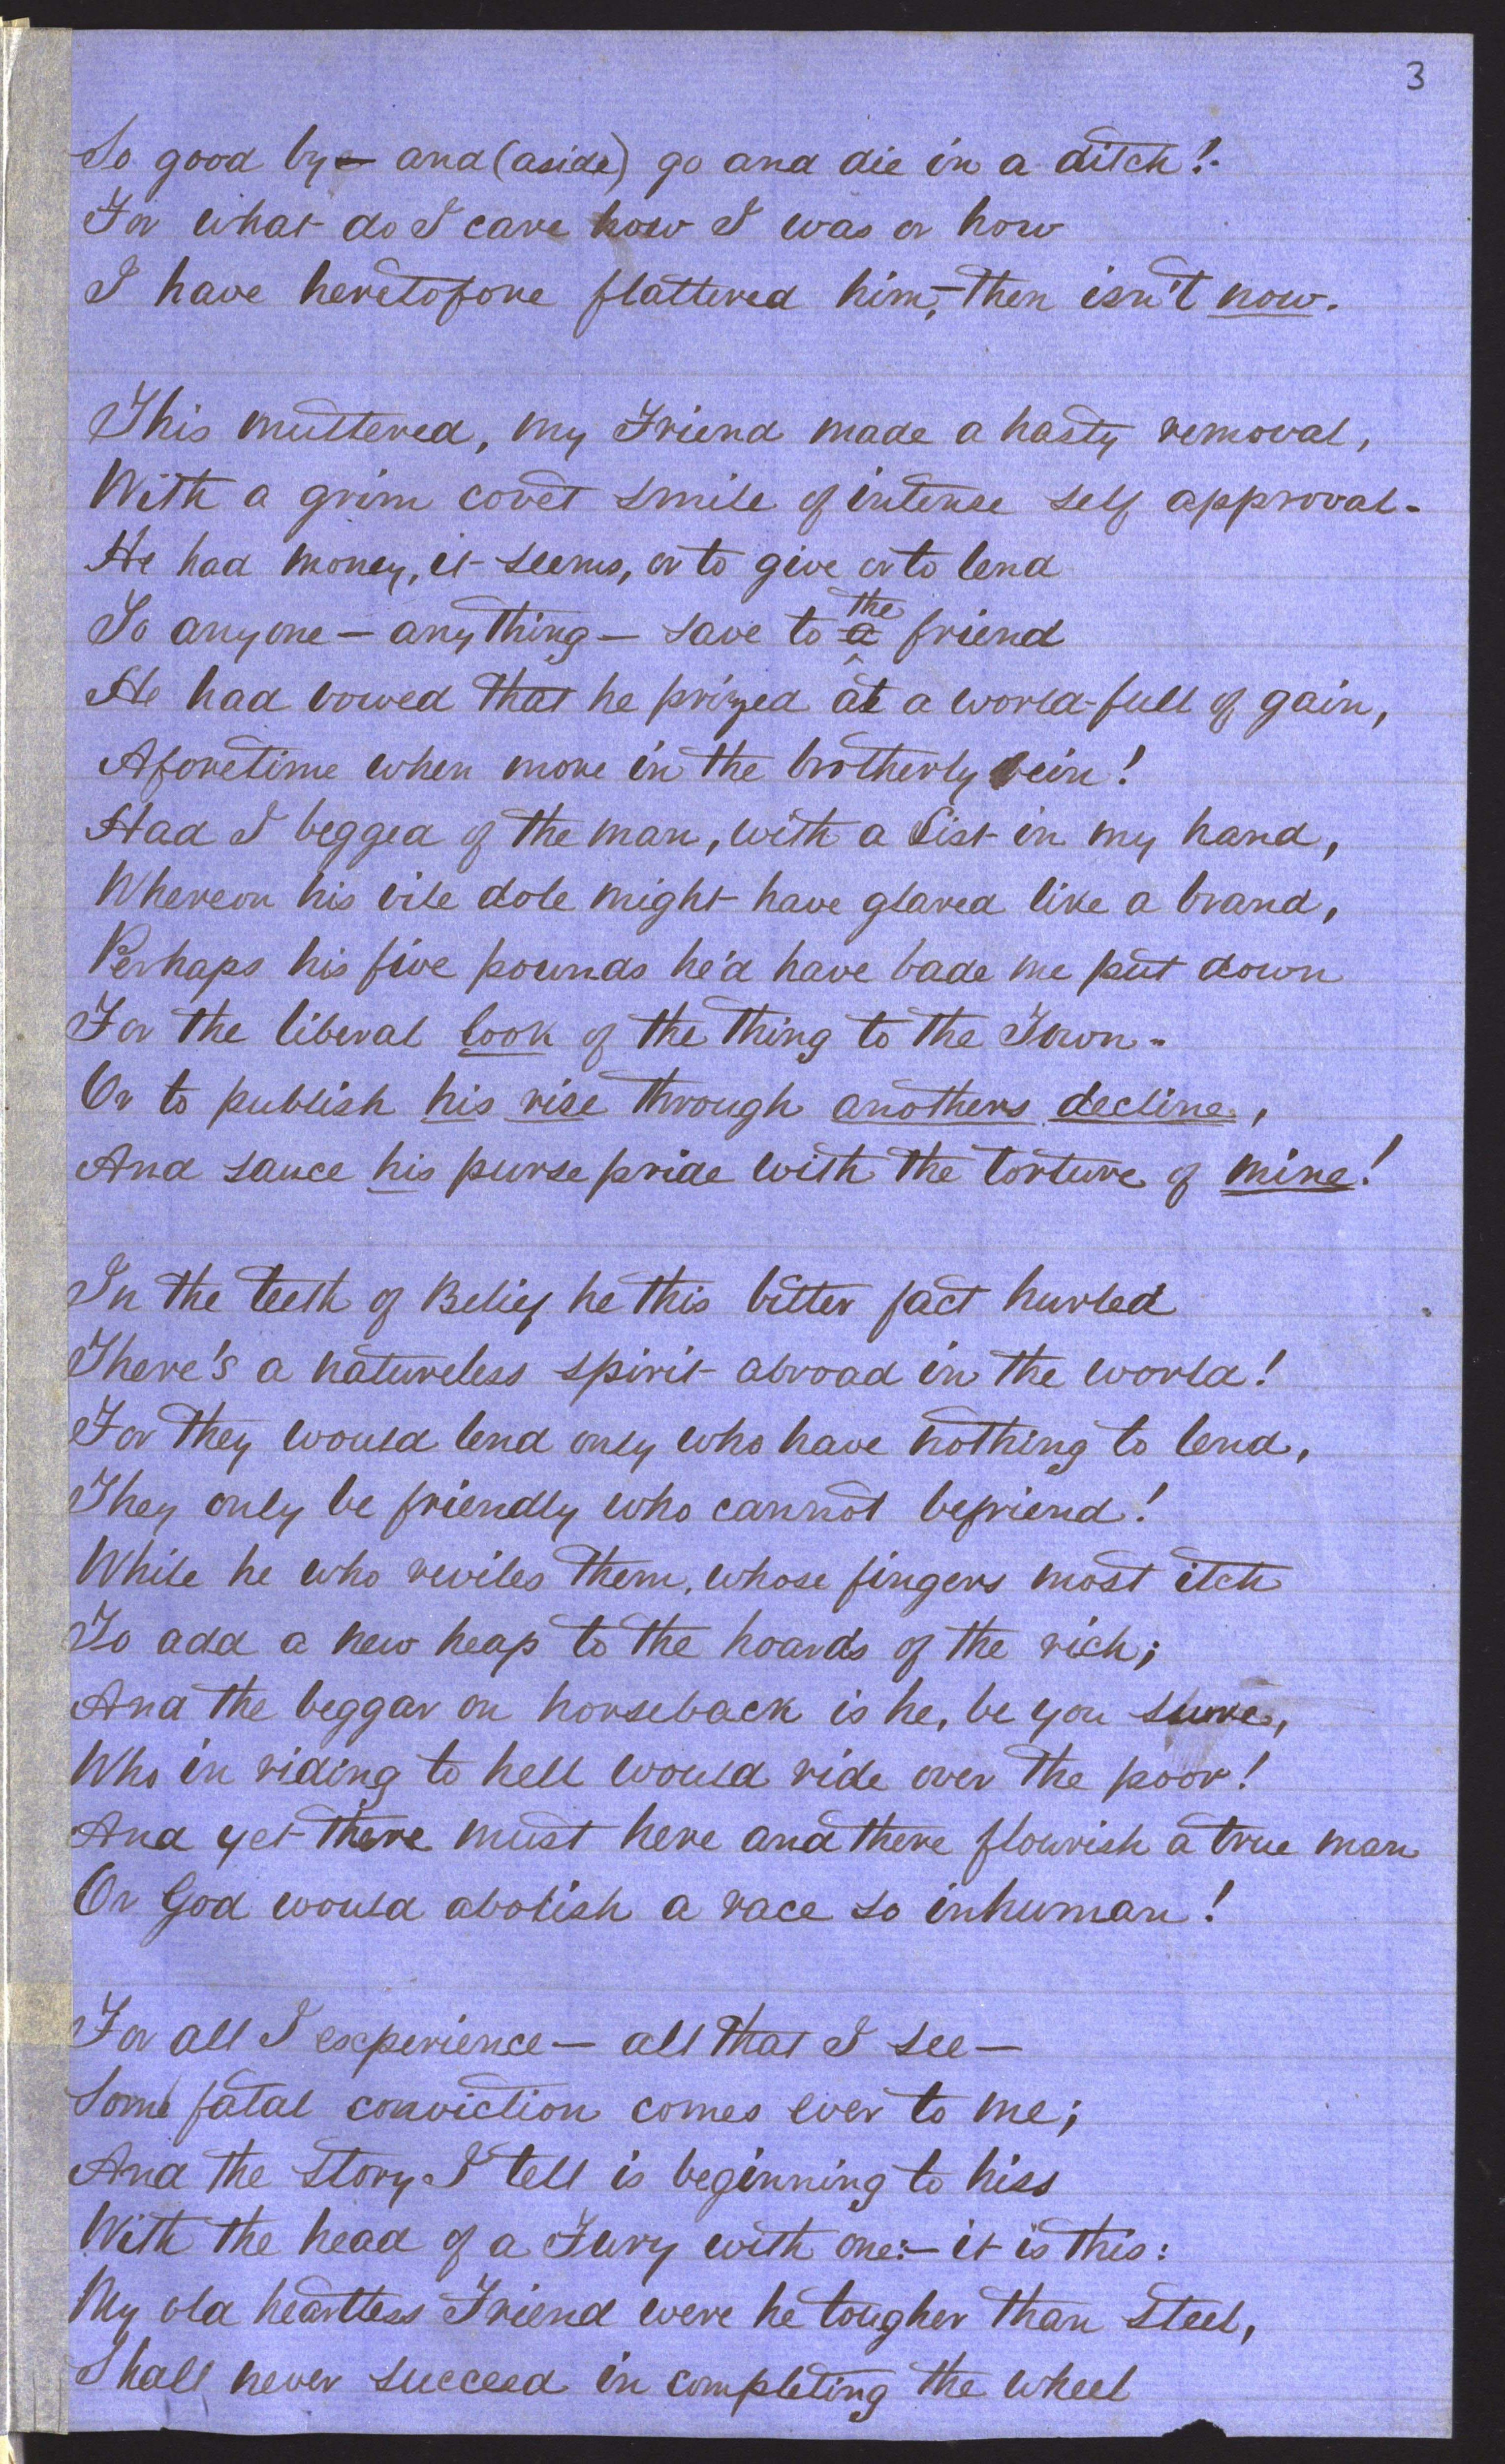 3
So good bye and (aside) go and die in a ditch!
For what do I care how I was or how
I have heretofore flattered him,—then isn't now.
This muttered, my Friend made a hasty removal,
With a grim covet smile of intense self approval-
He had money, it seems, or to give or to lend
To anyone — anything — save to a the friend
He had vowed that he prized at a world-full of gain,
Aforetime when more in the brotherly vein!
Had I begged of the man, with a List in my hand,
Whereon his vile dole might have glared like a brand,
Perhaps his five pounds he'd have bade me put down
For the liberal look of the thing to the Town.
Or to publish his rise through anothers decline,
And sauce his purse pride with the torture of mine!
In the teeth of Belief he this bitter fact hurled
There's a natureless spirit abroad in the world!
For they would lend only who have nothing to lend,
They only be friendly who cannot befriend!
While he who reviles them, whose fingers most itch
To add a new heap to the hoards of the rich;
And the beggar on horseback is he, be you sure,
Who in riding to hell would ride over the poor!
And yet there must here and there flourish a true man
Or God would abolish a race so inhuman!
For all I experience — all that I see —
Some fatal conviction comes ever to me;
And the Story I tell is beginning to hiss
With the head of a Fury with one:— it is this:
My old heartless Friend were he tougher than Steel,
Shall never succeed in completing the wheel